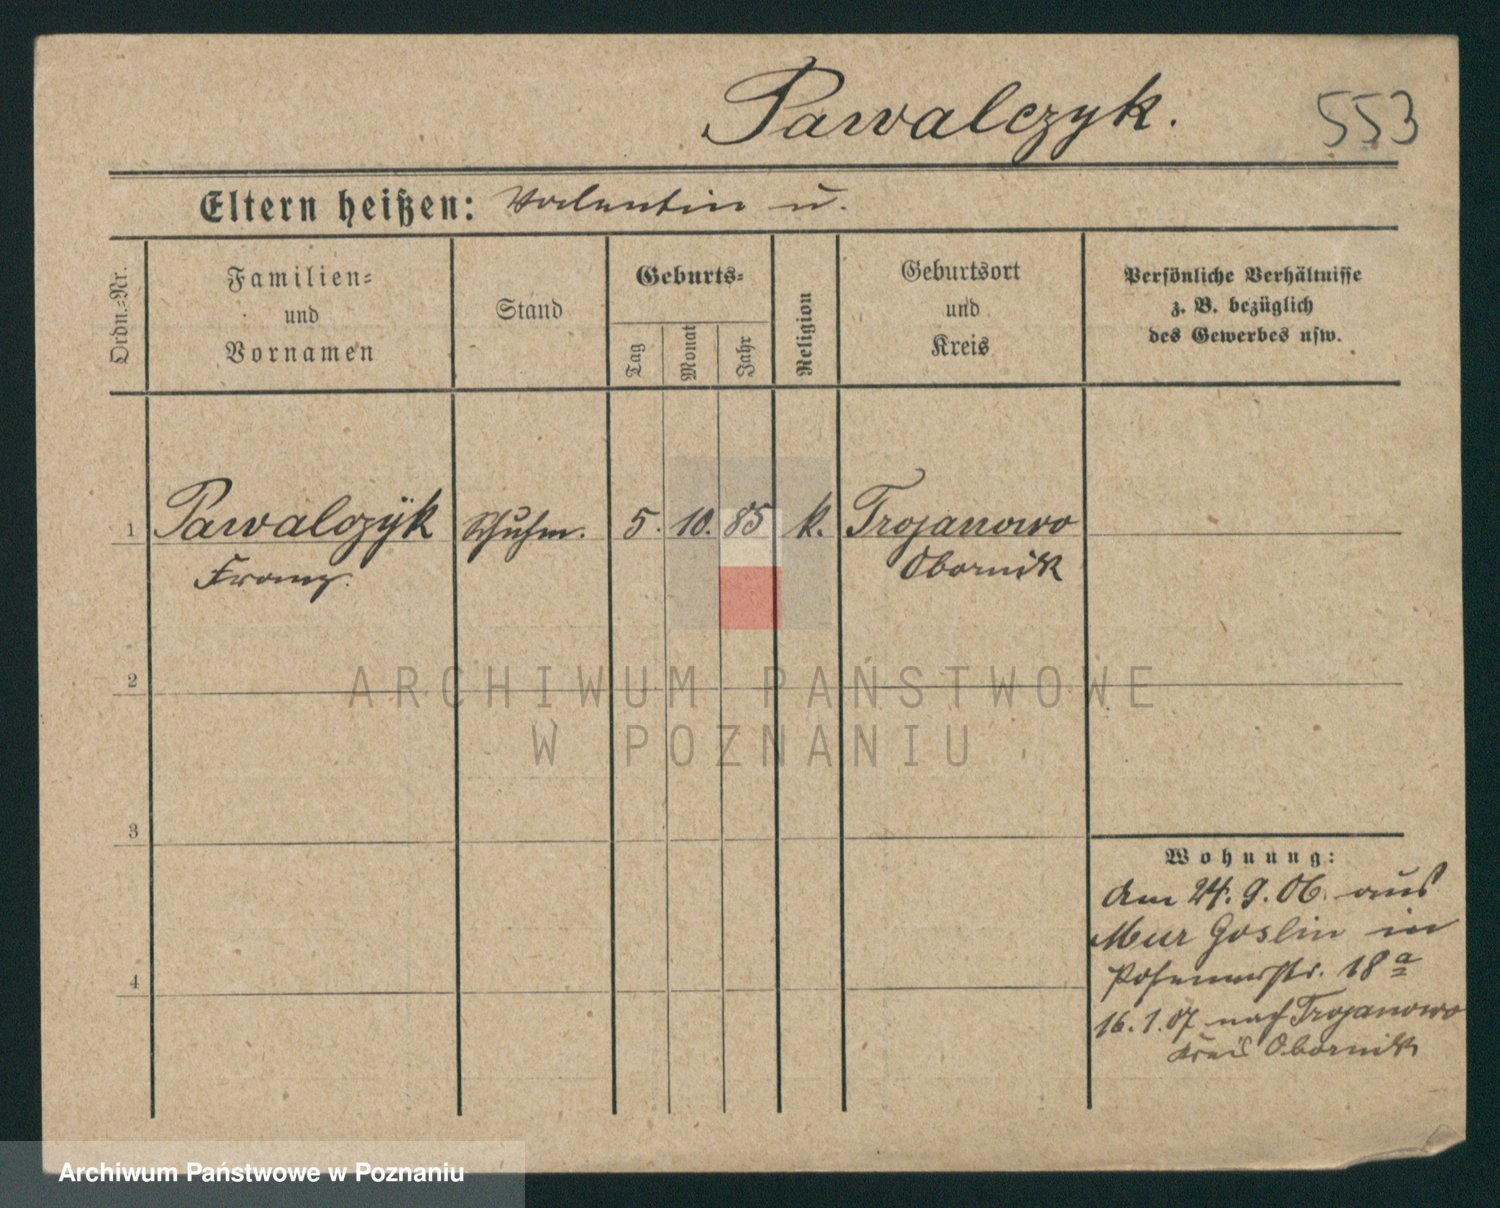 Pawalczyk.
553
Eltern heißen: Valentin u.
Ordn.-Nr.
Familien-
und
Vornamen
Stand
Geburts-
Tag
Monat
Jahr
Religion
Geburtsort
und
Kreis
Persönliche Verhältnisse
z. B. bezüglich
des Gewerbes usw.
1 Pawalczÿk Schuhm. 5. 10. 85 k. Trojanowo
Franz. Obornik
ARCHIWUM PAŃSTWOWE
W POZNANIU
2
3
4
Wohnung:
Am 24. 9. 06. aus
Mur Goslin in
Posenerstr. 18 a
16. 1. 07 nach Trojanowo
Kreis Obornik
Archiwum Państwowe w Poznaniu